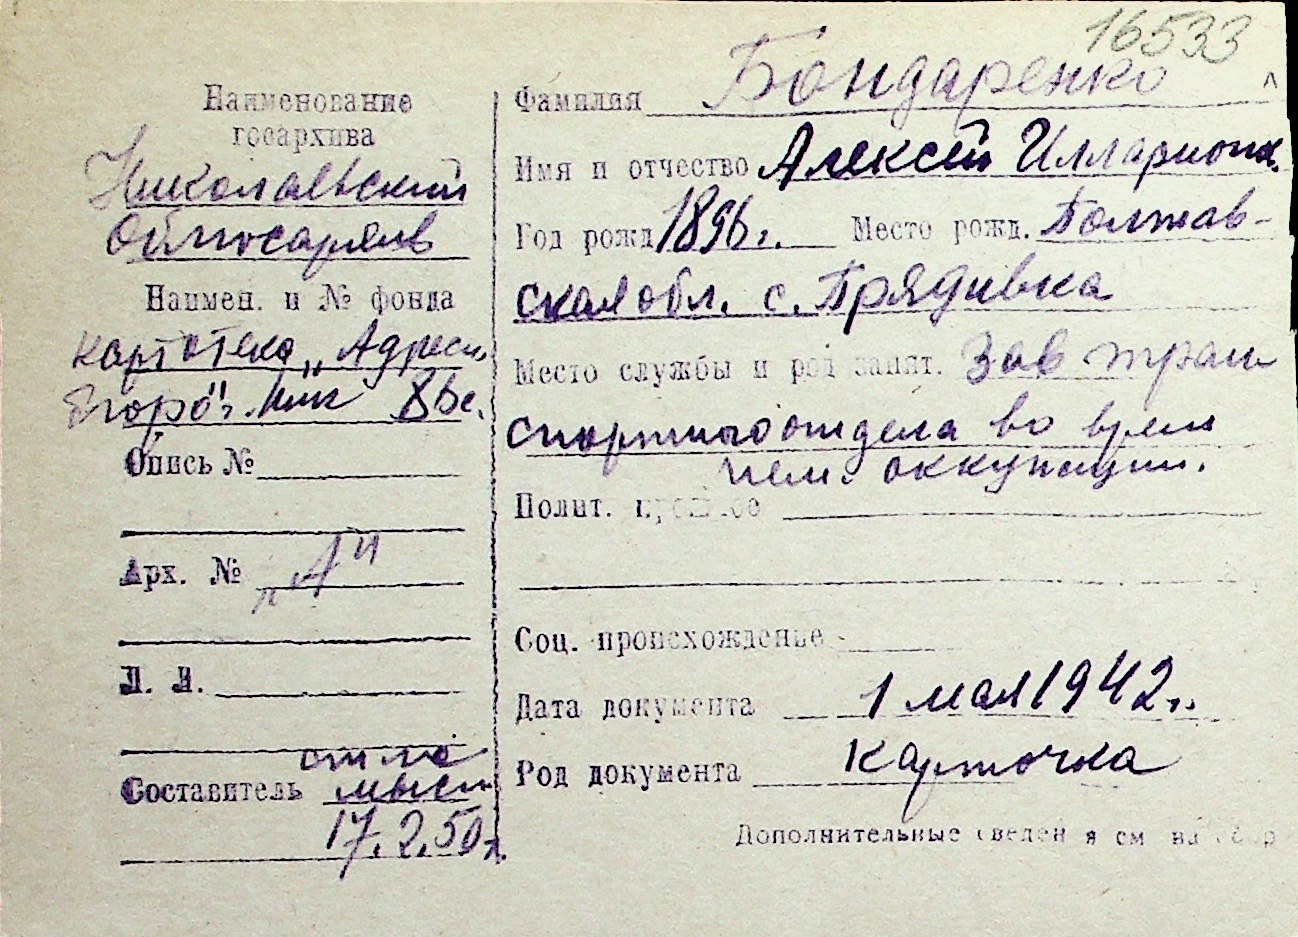 16533
Наименование
госархива
Николаевский
Облгосархив
Наимен. и № фонда
картотека „Адресн.
бюро" г. Ник
Опись №
Арх. № „А"
Л. Л.
Составитель
17.2.50г.
Фамилия Бондаренко
Имя и отчество Алексей Илларионов.
Год рожд 1896г. Место рожд. Полтав-
ская обл. с. Прядивка
Место службы и род занят. Зав тран
спортного отдела во время
нем. оккупации.
Полит. прошлое
Соц. происхожденье
Дата документа 1 мая 1942г.
Род документа Карточка
Дополнительные сведен я см на обор